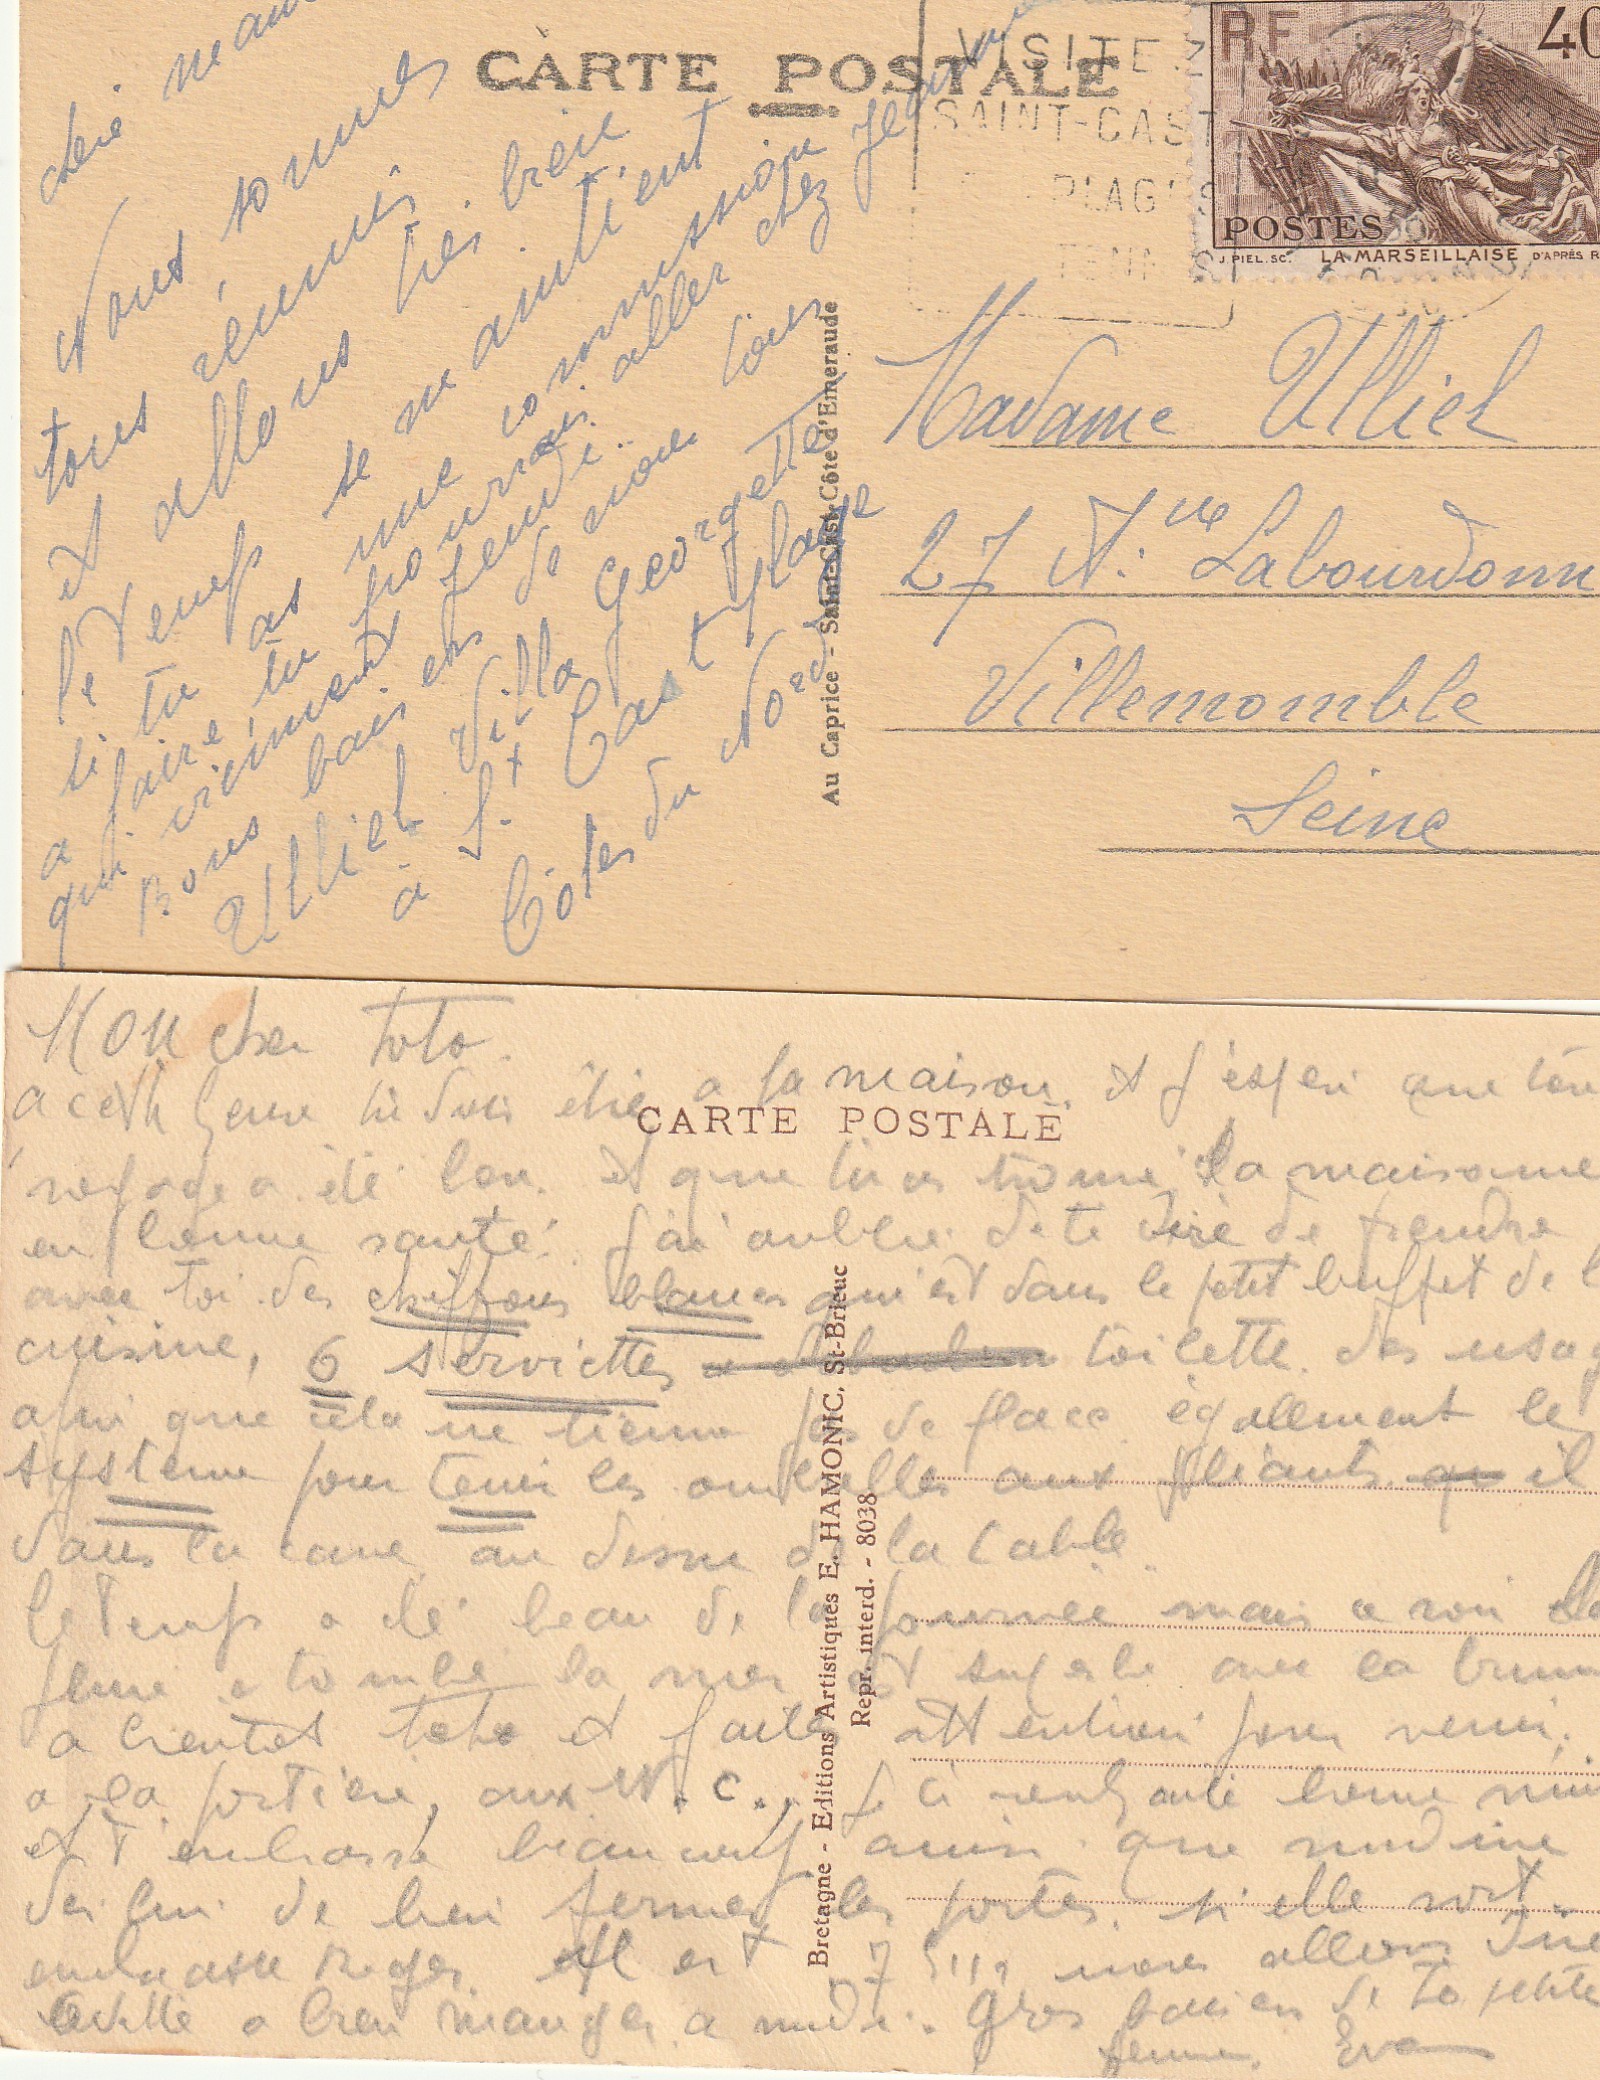 CARTE POSTALE
VISITEZ
SAINT-CAST
PLAGES
TENNIS
RF
40
POSTES
J. PIEL. SC. LA MARSEILLAISE D'APRÈS R
Nous sommes
tous réunis
et allons très bien
le temps se maintient
si tu as une commission
a faire tu pourrais aller chez Jeanne
qui viennent jeudi.
Bons baisers de nous tous
Ulliel Villa Georgette
à St Cast plage
Côtes du Nord
Au Caprice - Saint-Cast-Côte d'Emeraude
Madame Ulliel
27 Labourdonn
Villemomble
Seine
Mon cher toto.
CARTE POSTALE
a cette heure tu dois être a la maison, et j'espère que ton
voyage a été bon. et que tu as trouvé la maisonnée
en bonne santé. j'ai oublié de te dire de prendre
avec toi des chiffons blancs qui est dans le petit buffet de l
cuisine, 6 serviettes toilette. des usag
afin que cela ne tienne pas de place également le
système pour tenir les ombrelles aux pliants qu il
dans la cave au dessu de la table.
le temps a été beau de la journée mais ce soir la
pluie a tombé la mer est superbe avec la brume
a bientot toto et fait attention pour venir.
a la portière, aux W.C... je te souhaite bonne nuit
et t'embrasse beaucoup ainsi que nudine
dis lui de bien fermer les portes. si elle sort.
embrasse Roger. il est 7 nous allons dine
a bien manger a midi. Gros baisers de ta petite
femme. Eva
Bretagne - Editions Artistiques E. HAMONIC, St-Brieuc
Repr. interd. - 8038